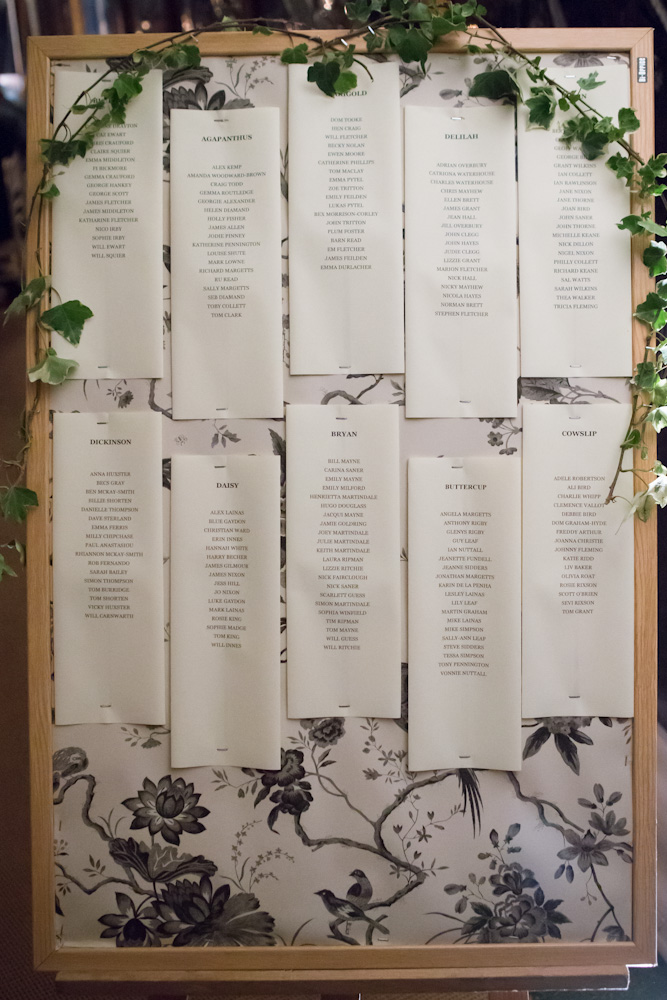 EWART
CRAUFORD
CLAIRE SQUIER
EMMA MIDDLETON
GEMMA CRAUFORD
GEORGE HANKEY
GEORGE SCOTT
JAMES FLETCHER
JAMES MIDDLETON
KATHARINE FLETCHER
NICO IRBY
SOPHIE IRBY
WILL EWART
WILL SQUIER
AGAPANTHUS
ALEX KEMP
AMANDA WOODWARD-BROWN
CRAIG TODD
GEMMA ROUTLEDGE
GEORGIE ALEXANDER
HELEN DIAMAND
HOLLY FISHER
JAMES ALLEN
JODIE PINNEY
KATHERINE PENNINGTON
LOUISE SHUTE
MARK LOWNE
RICHARD MARGETTS
RU READ
SALLY MARGETTS
SEB DIAMAND
TOBY COLLETT
TOM CLARK
TOM TOOKE
BEN CRAIG
WILL FLETCHER
BECKY NOLAN
EWEN MOORE
CATHERINE PHILLIPS
TOM MACLAY
EMMA PYTEL
ZOE TRITTON
EMILY FEILDEN
LUKAS PYTEL
REX MORRISON-CORLEY
JOHN TRITTON
PLUM FOSTER
BARN READ
EM FLETCHER
JAMES FEILDEN
EMMA DURLACHER
DELILAH
ADRIAN OVERBURY
CATRIONA WATERHOUSE
CHARLES WATERHOUSE
CHRIS MAYHEW
ELLEN BRETT
JAMES GRANT
JEAN HALL
JILL OVERBURY
JOHN CLEGG
JOHN HAYES
JUDIE CLEGG
LIZZIE GRANT
MARION FLETCHER
NICK HALL
NICKY MAYHEW
NICOLA HAYES
NORMAN BRETT
STEPHEN FLETCHER
GRANT WILKINS
IAN COLLETT
IAN RAWLINSON
JANE NIXON
JANE THORNE
JOAN BIRD
JOHN SANER
JOHN THORNE
MICHELLE KEANE
NICK DILLON
NIGEL NIXON
PHILLY COLLETT
RICHARD KEANE
SAL WATTS
SARAH WILKINS
THEA WALKER
TRICIA FLEMING
DICKINSON
ANNA HUXSTER
BECS GRAY
BEN MCKAY-SMITH
BILLIE SHORTEN
DANIELLE THOMPSON
DAVE STERLAND
EMMA FERRIS
MILLY CHIPCHASE
PAUL ANASTASIOU
RHIANNON MCKAY-SMITH
ROB FERNANDO
SARAH BAILEY
SIMON THOMPSON
TOM BURRIDGE
TOM SHORTEN
VICKY HUXSTER
WILL CARNWARTH
DAISY
ALEX LAINAS
BLUE GAYDON
CHRISTIAN WARD
ERIN INNES
HANNAH WHITE
HARRY BECHER
JAMES GILMOUR
JAMES NIXON
JESS HILL
JO NIXON
LUKE GAYDON
MARK LAINAS
ROSIE KING
SOPHIE MADGE
TOM KING
WILL INNES
BRYAN
BILL MAYNE
CARINA SANER
EMILY MAYNE
EMILY MILFORD
HENRIETTA MARTINDALE
HUGO DOUGLASS
JACQUI MAYNE
JAMIE GOLDRING
JOEY MARTINDALE
JULIE MARTINDALE
KEITH MARTINDALE
LAURA RIPMAN
LIZZIE RITCHIE
NICK FAIRCLOUGH
NICK SANER
SCARLETT GUESS
SIMON MARTINDALE
SOPHIA WINFIELD
TIM RIPMAN
TOM MAYNE
WILL GUESS
WILL RITCHIE
BUTTERCUP
ANGELA MARGETTS
ANTHONY RIGBY
GLENYS RIGBY
GUY LEAF
IAN NUTTALL
JEANETTE FUNDELL
JEANNE SIDDERS
JONATHAN MARGETTS
KAREN DE LA PENHA
LESLEY LAINAS
LILY LEAF
MARTIN GRAHAM
MIKE LAINAS
MIKE SIMPSON
SALLY-ANN LEAF
STEVE SIDDERS
TESSA SIMPSON
TONY PENNINGTON
VONNIE NUTTALL
COWSLIP
ADELE ROBERTSON
ALI BIRD
CHARLIE WHIPP
CLEMENCE VALLOT
DEBBIE BIRD
DOM GRAHAM-HYDE
FREDDY ARTHUR
JOANNA CHRISTIE
JOHNNY FLEMING
KATIE KIDD
LIV BAKER
OLIVIA ROAT
ROSIE RIXSON
SCOTT O'BRIEN
SEVI RIXSON
TOM GRANT